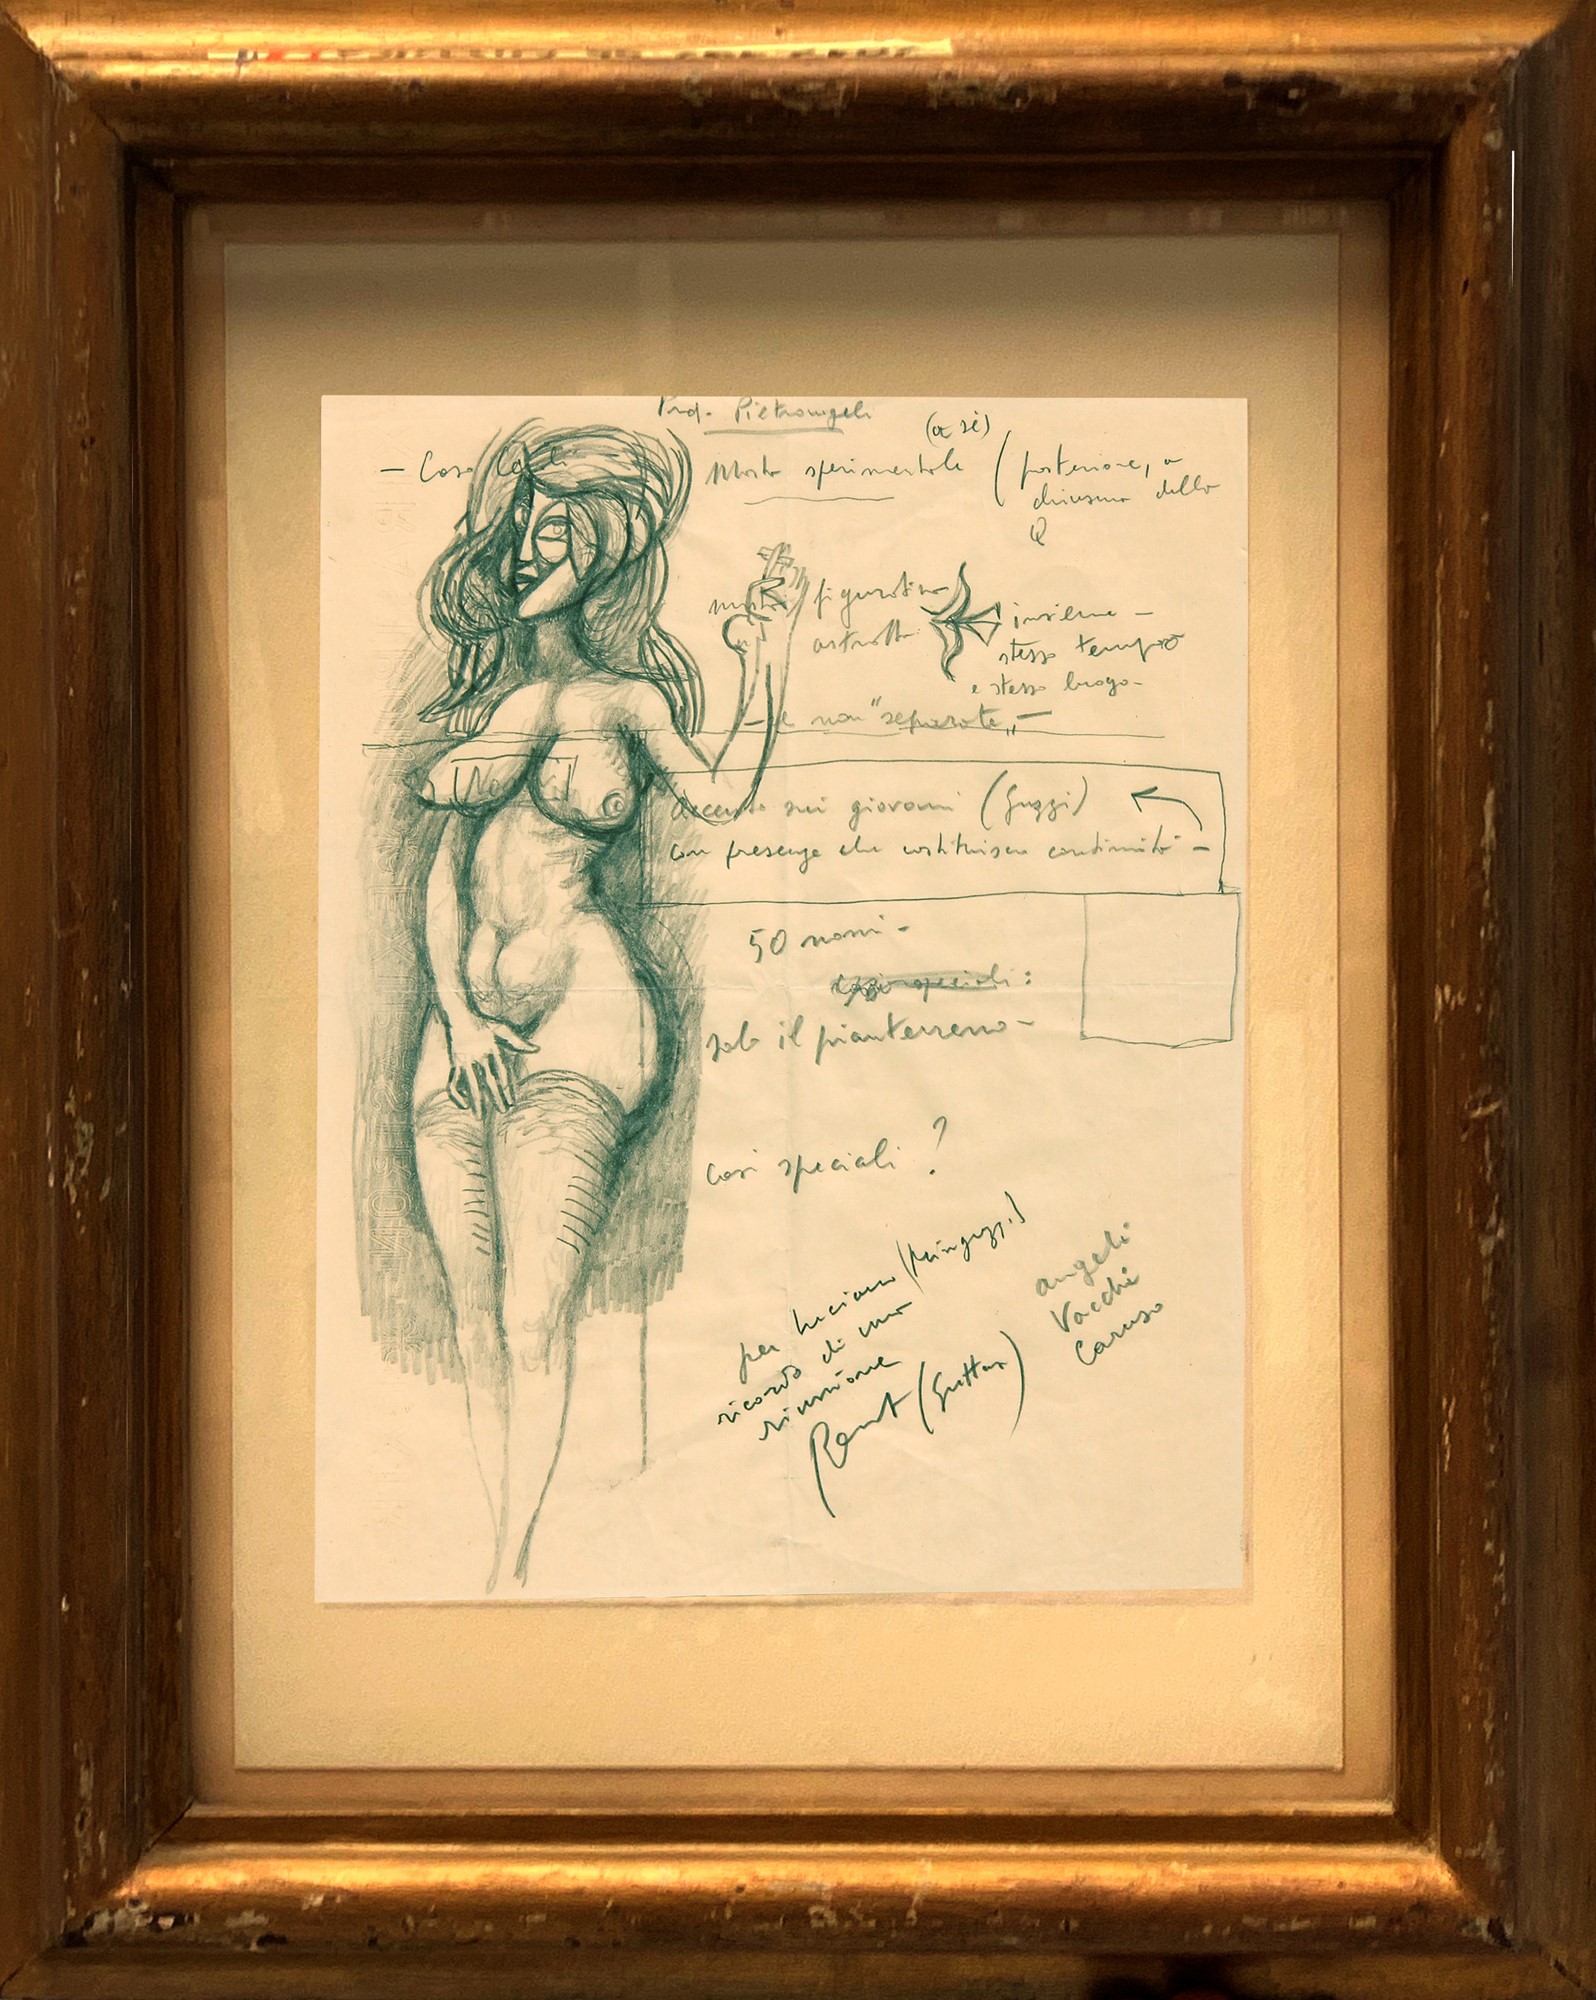 Prof. Pietrangeli
(a sé)
- Casa
Mostra sperimentale (posteriore, a
chiusura della
Q
mostra figurativa
astratta
insieme -
stesso tempo
e stesso luogo -
- e non "separate" -
accento sui giovani (Guzzi)
con presenze che costituiscono continuità -
50 nomi -
casi speciali:
solo il pianterreno -
casi speciali ?
per Luciano (Minguzzi)
ricordo di una
riunione
Renato (Guttuso)
angeli
Vacchi
Caruso